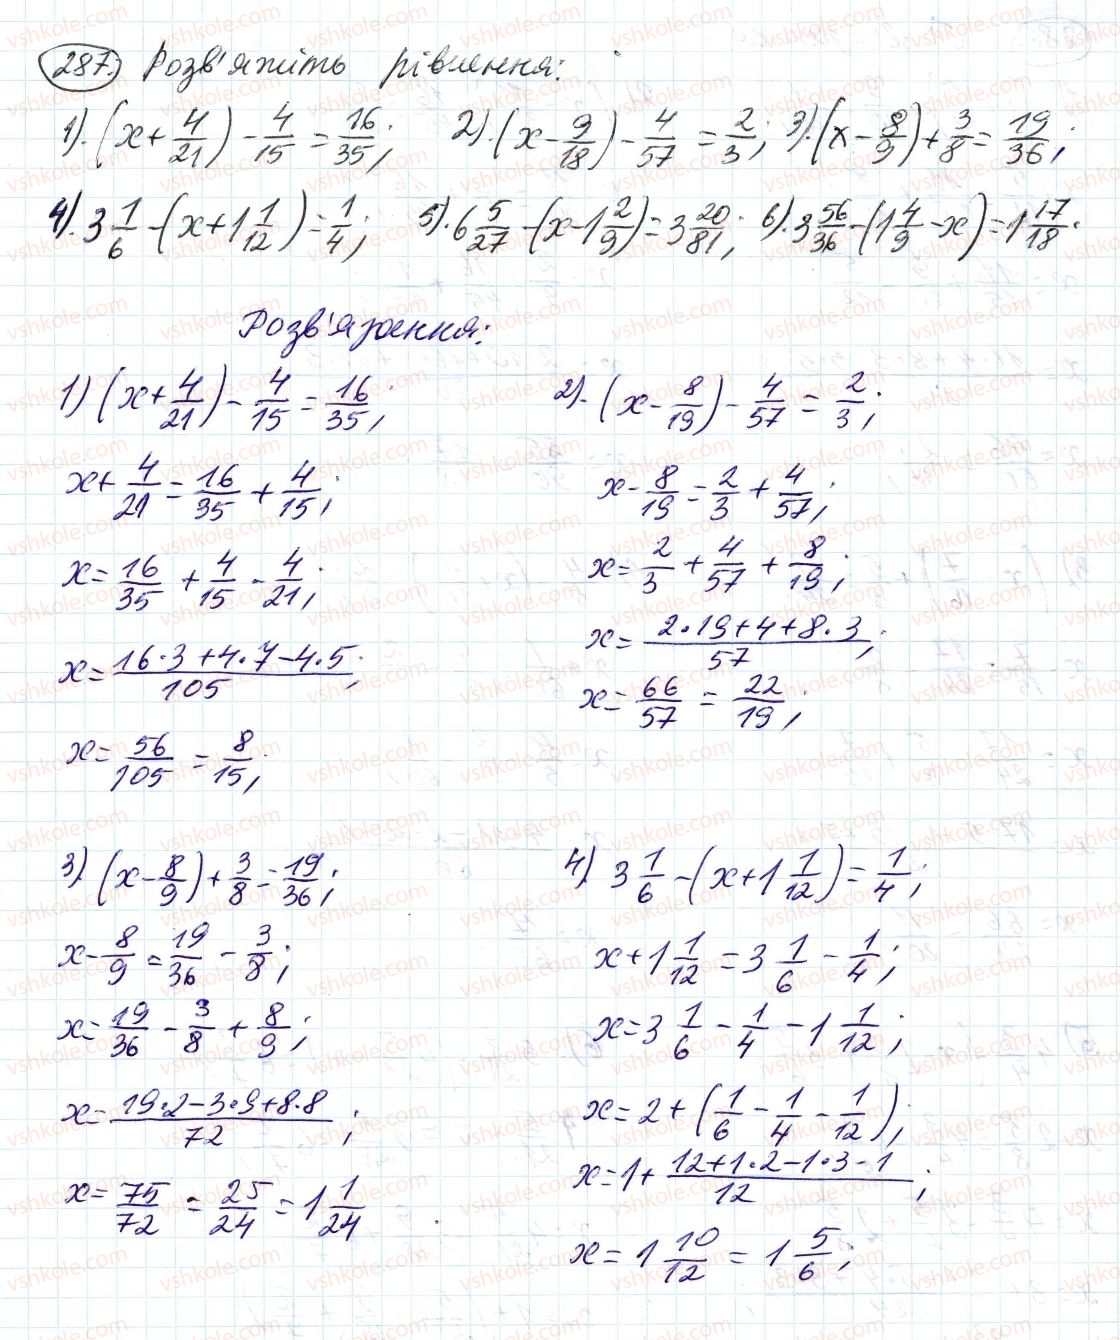 287. Розв'яжіть рівняння:
1). (x + 4/21) - 4/15 = 16/35; 2). (x - 9/18) - 4/57 = 2/3; 3). (x - 8/9) + 3/8 = 19/36;
4). 3 1/6 - (x + 1 1/12) = 1/4; 5). 6 5/27 - (x - 1 2/9) = 3 20/81; 6). 3 56/36 - (1 4/9 - x) = 1 17/18.
Розв'язання:
1) (x + 4/21) - 4/15 = 16/35;
x + 4/21 = 16/35 + 4/15;
x = 16/35 + 4/15 - 4/21;
x = (16·3 + 4·7 - 4·5)/105;
x = 56/105 = 8/15;
2). (x - 8/19) - 4/57 = 2/3;
x - 8/19 = 2/3 + 4/57;
x = 2/3 + 4/57 + 8/19;
x = (2·19 + 4 + 8·3)/57;
x = 66/57 = 22/19;
3) (x - 8/9) + 3/8 = 19/36;
x - 8/9 = 19/36 - 3/8;
x = 19/36 - 3/8 + 8/9;
x = (19·2 - 3·9 + 8·8)/72;
x = 75/72 = 25/24 = 1 1/24
4) 3 1/6 - (x + 1 1/12) = 1/4;
x + 1 1/12 = 3 1/6 - 1/4;
x = 3 1/6 - 1/4 - 1 1/12;
x = 2 + (1/6 - 1/4 - 1/12);
x = 1 + (12 + 1·2 - 1·3 - 1)/12;
x = 1 10/12 = 1 5/6;